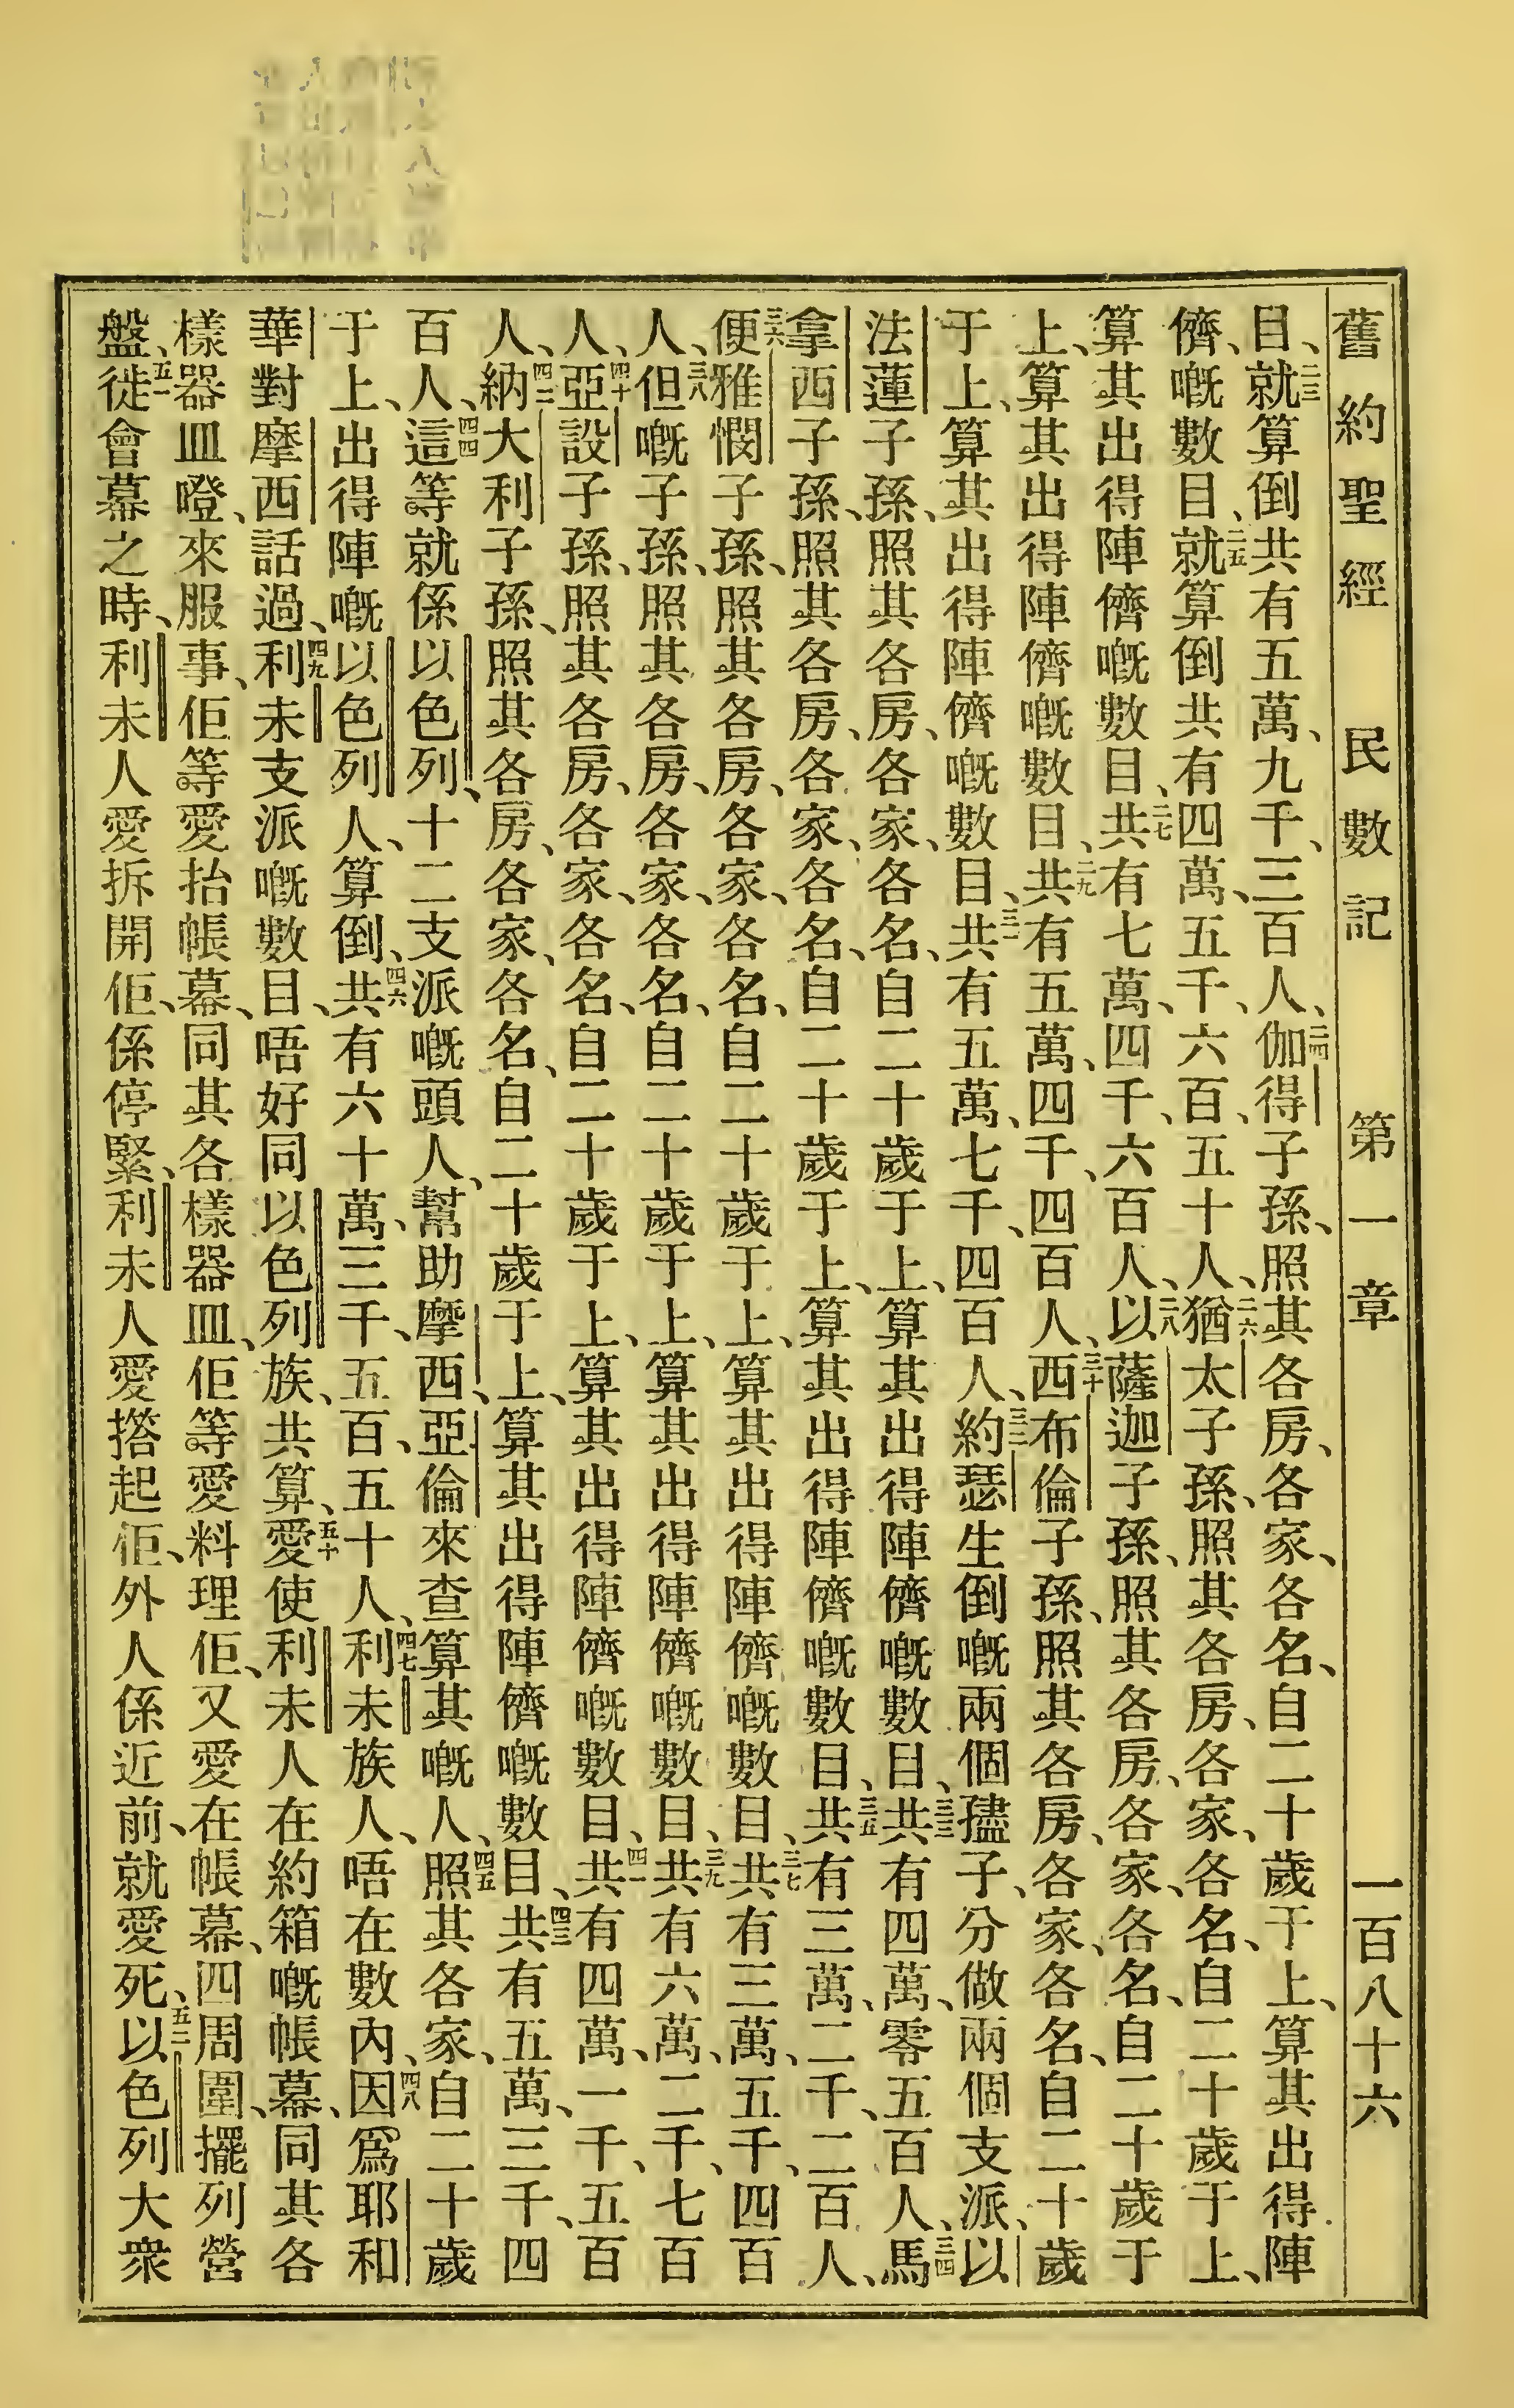 舊約聖經 民數記 第一章 一百八十六
目、二三就算倒共有五萬、九千、三百人、二四伽得子孫、照其各房、各家、各名、自二十歲于上、算其出得陣
儕、嘅數目、二五就算倒共有四萬、五千、六百、五十人、二六猶太子孫、照其各房、各家、各名、自二十歲于上、
算其出得陣儕嘅數目、二七共有七萬、四千、六百人、二八以薩迦子孫、照其各房、各家、各名、自二十歲于
上、算其出得陣儕嘅數目、二九共有五萬、四千、四百人、三十西布倫子孫、照其各房、各家、各名、自二十歲
于上、算其出得陣儕嘅數目、三一共有五萬、七千、四百人、三二約瑟生倒嘅兩個孻子、分做兩個支派、以
法蓮子孫、照其各房、各家、各名、自二十歲于上、算其出得陣儕嘅數目、三三共有四萬、零五百人、三四馬
拿西子孫、照其各房、各家、各名、自二十歲于上、算其出得陣儕嘅數目、三五共有三萬、二千、二百人、
三六便雅憫子孫、照其各房、各家、各名、自二十歲于上、算其出得陣儕嘅數目、三七共有三萬、五千、四百
人、三八但嘅子孫、照其各房、各家、各名、自二十歲于上、算其出得陣儕嘅數目、三九共有六萬、二千、七百
人、四十亞設子孫、照其各房、各家、各名、自二十歲于上、算其出得陣儕嘅數目、四一共有四萬、一千、五百
人、四二納大利子孫、照其各房、各家、各名、自二十歲于上、算其出得陣儕嘅數目、四三共有五萬、三千、四
百人、四四這等就係以色列、十二支派嘅頭人、幫助摩西、亞倫來查算其嘅人、四五照其各家、自二十歲
于上、出得陣嘅以色列人、算倒、四六共有六十萬、三千、五百、五十人、四七利未族人、唔在數內、四八因爲耶和
華對摩西話過、四九利未支派嘅數目、唔好同以色列族、共算、五十愛使利未人在約箱嘅帳幕、同其各
樣器皿噔、來服事、佢等愛抬帳幕、同其各樣器皿、佢等愛料理佢、又愛在帳幕、四周圍、擺列營
盤、五一徙會幕之時、利未人愛拆開佢、係停緊、利未人愛撘起佢、外人係近前、就愛死、五二以色列大衆